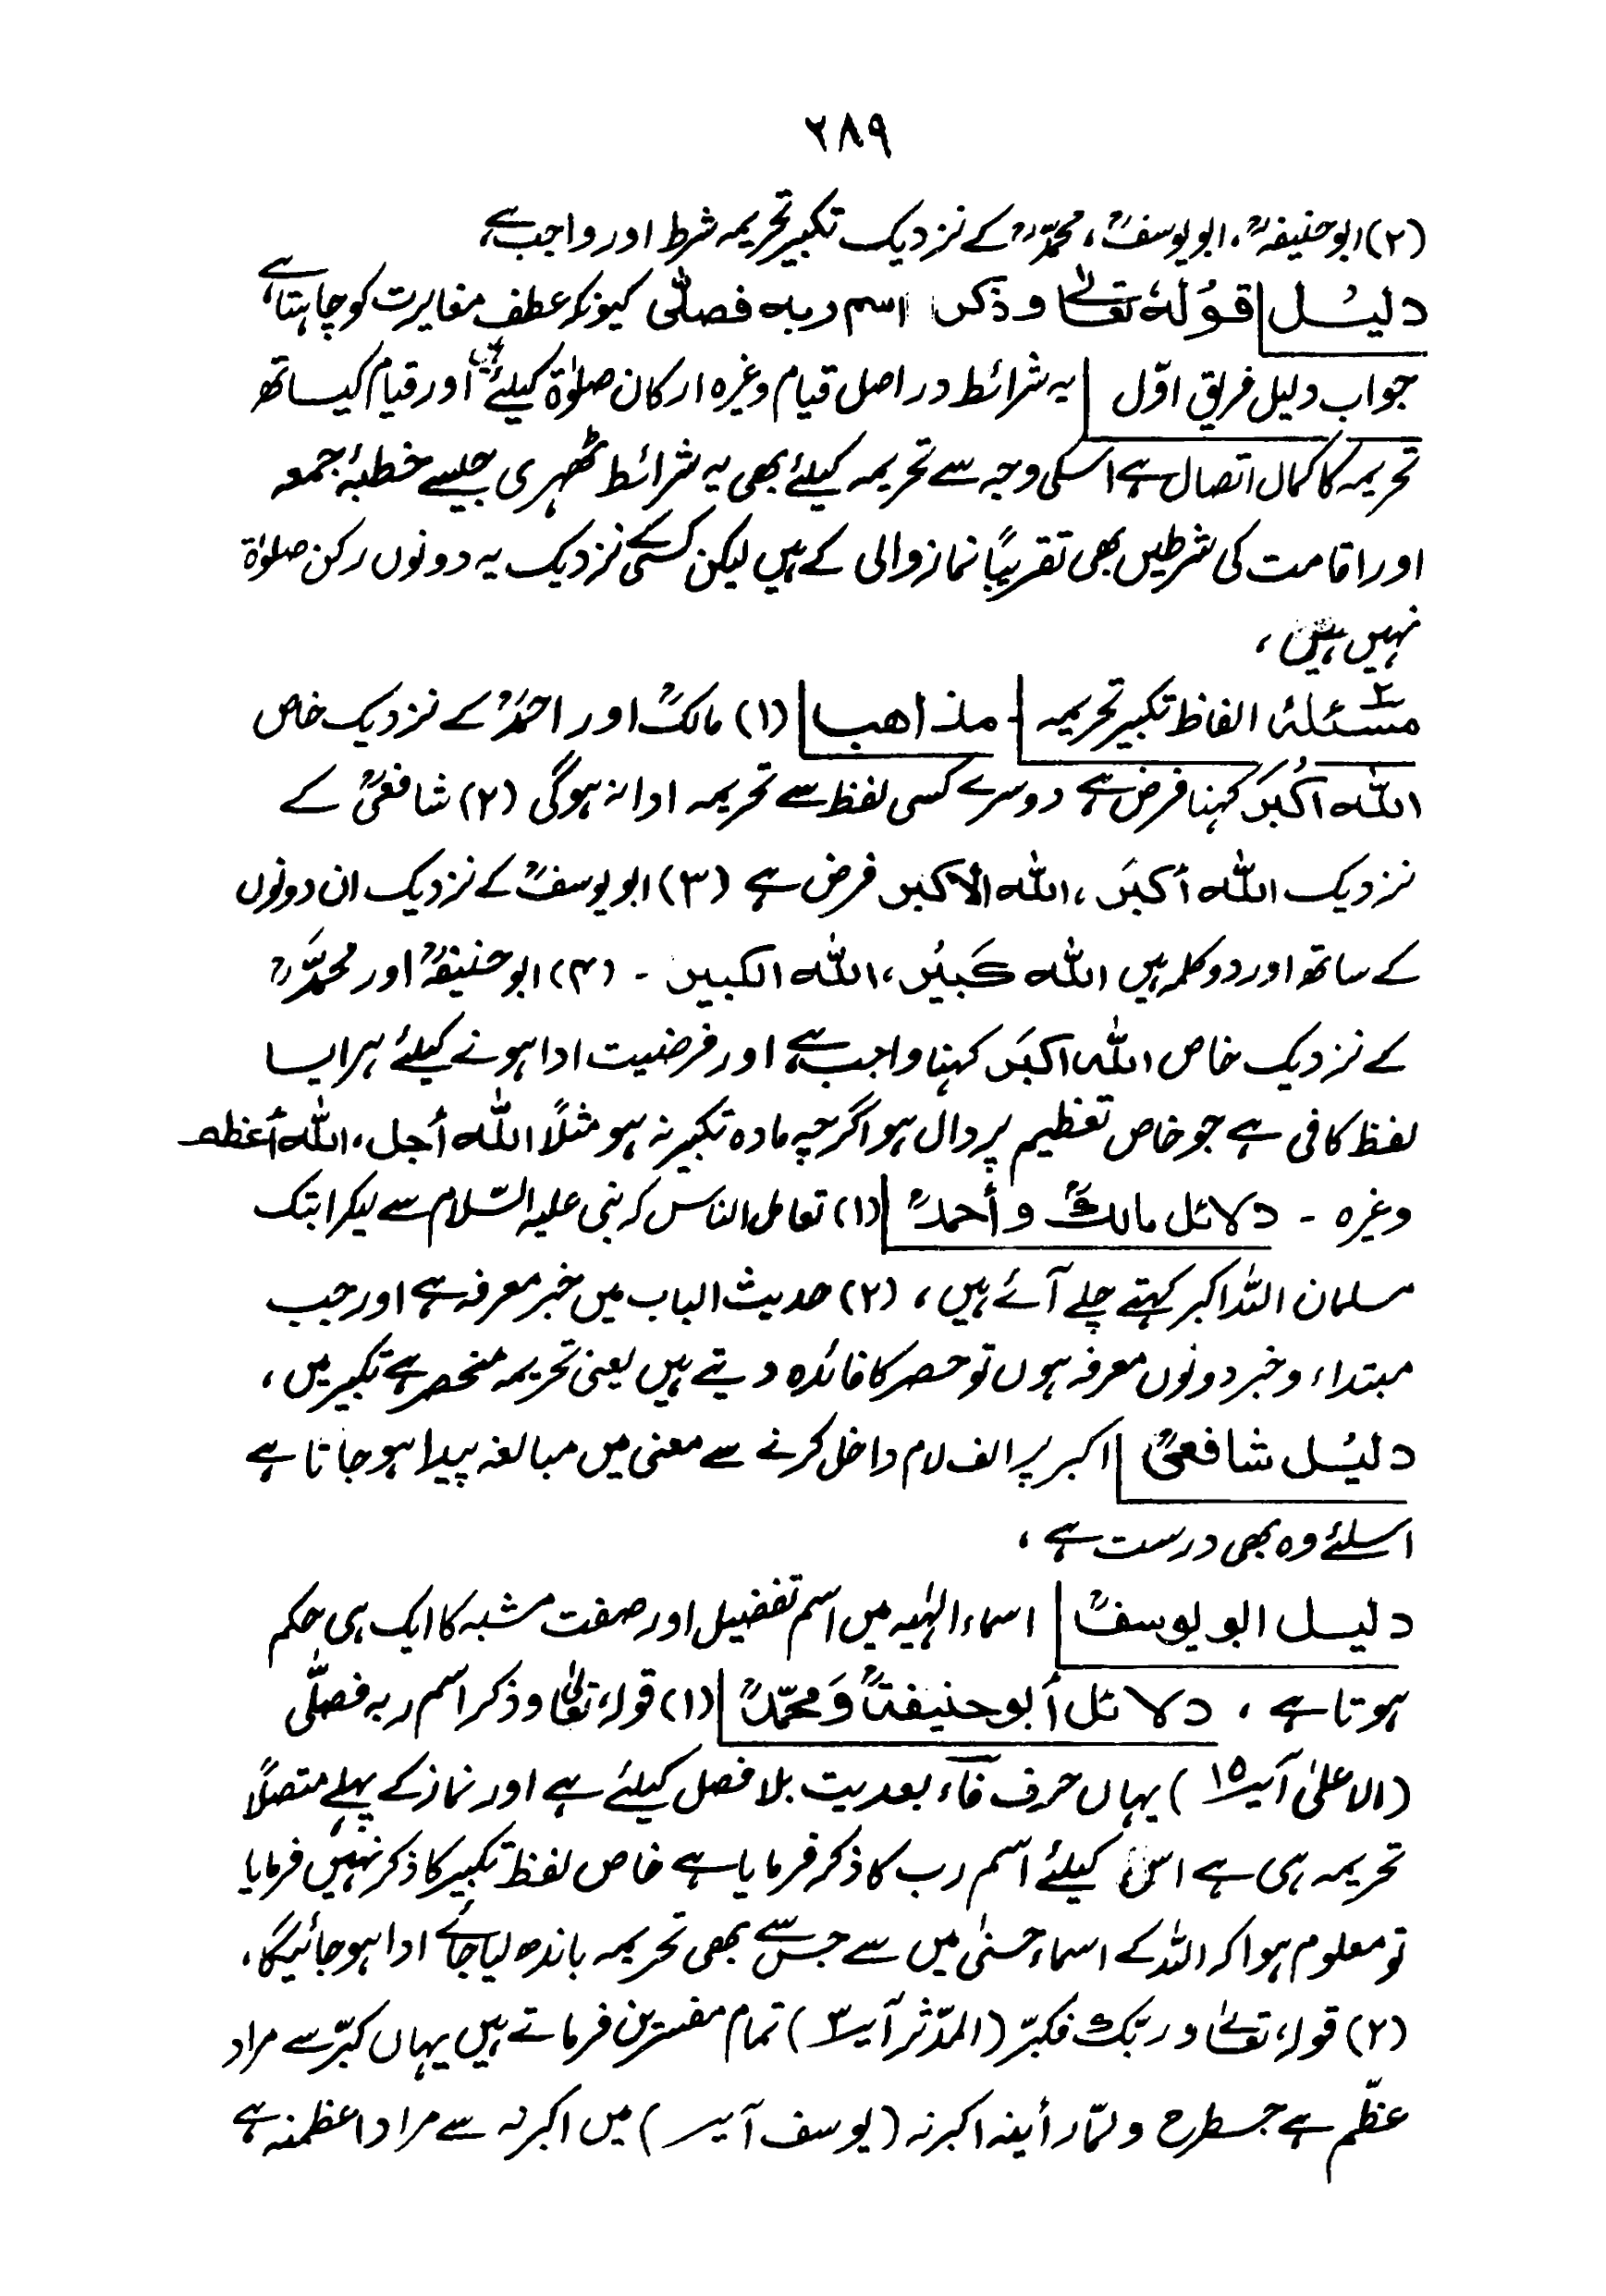 ۲۸۹
(۲) ابوحنیفہؒ، ابویوسفؒ، محمدؒ کے نزدیک تکبیر تحریمہ شرط اور واجب ہے،
دلیل قولہٗ تعالےٰ وذکر اسم ربہ فصلّٰی کیونکہ عطف مغایرت کو چاہتا ہے،
جواب دلیل فریق اوّل یہ شرائط در اصل قیام وغرہ ارکان صلوٰۃ کیلئے ہیں اور قیام کیساتھ
تحریمہ کا کمال اتصال ہے اسکی وجہ سے تحریمہ کیلئے بھی یہ شرائط ٹھہری جیسے خطبۂ جمعہ
اور اقامت کی شرطیں بھی تقریباً نماز والی کے ہیں لیکن کسی کے نزدیک یہ دونوں رکن صلوٰۃ
نہیں ہیں،
مسئلۂ ۲ الفاظ تکبیر تحریمہ - مذاهب (۱) مالکؒ اور احمدؒ کے نزدیک خاص
اللہ اکبرُ کہنا فرض ہے دوسرے کسی لفظ سے تحریمہ ادا نہ ہوگی (۲) شافعیؒ کے
نزدیک اللہ أکبر، اللہ الاکبر فرض ہے (۳) ابویوسفؒ کے نزدیک ان دونوں
کے ساتھ اور دو کلمہ ہیں اللہ کبیر، اللہ الکبیر - (۴) ابوحنیفہؒ اور محمدؒ
کے نزدیک خاص اللہ اکبر کہنا واجب ہے، اور فرضیت ادا ہونے کیلئے ہر ایسا
لفظ کافی ہے جو خاص تعظیم پر دال ہو اگرچہ مادہ تکبیر نہ ہو مثلاً اللہ أجل، اللہ أعظم
وغرہ - دلائل مالکؒ وأحمدؒ (۱) تعامل الناس کہ نبی علیہ السّلام سے لیکر ابتک
مسلمان اللہ اکبر کہتے چلے آئے ہیں، (۲) حدیث الباب میں خبر معرفہ ہے اور جب
مبتداء وخبر دونوں معرفہ ہوں تو حصر کا فائدہ دیتے ہیں یعنی تحریمہ منحصر ہے تکبیر میں،
دلیل شافعیؒ اکبر پر الف لام داخل کرنے سے معنی میں مبالغہ پیدا ہو جاتا ہے
اسلئے وہ بھی درست ہے،
دلیل ابویوسفؒ اسماء الہٰیہ میں اسم تفضیل اور صفت مشبہ کا ایک ہی حکم
ہوتا ہے، دلائل أبوحنیفةؒ وَمحمّدؒ (۱) قولہ، تعالیٰ وذکر اسم ربہ فصلّٰی
(الاعلیٰ آیہ ۱۵) یہاں حرف فاء بعدیت بلا فصل کیلئے ہے اور نماز کے پہلے متصلاً
تحریمہ ہی ہے اس کیلئے اسم رب کا ذکر فرمایا ہے خاص لفظ تکبیر کا ذکر نہیں فرمایا
تو معلوم ہوا کہ اللہ کے اسماء حسنیٰ میں سے جس سے بھی تحریمہ باندھ لیا جائے ادا ہو جائیگا،
(۲) قولہ، تعالےٰ وربّک فکبّر (المدّثر آیہ ۳) تمام مفسّرین فرماتے ہیں یہاں کبّر سے مراد
عظّم ہے جسطرح ولمّا رأینہ اکبرنہ (یوسف آیہ) میں اکبرنہ سے مراد اعظمنہ ہے